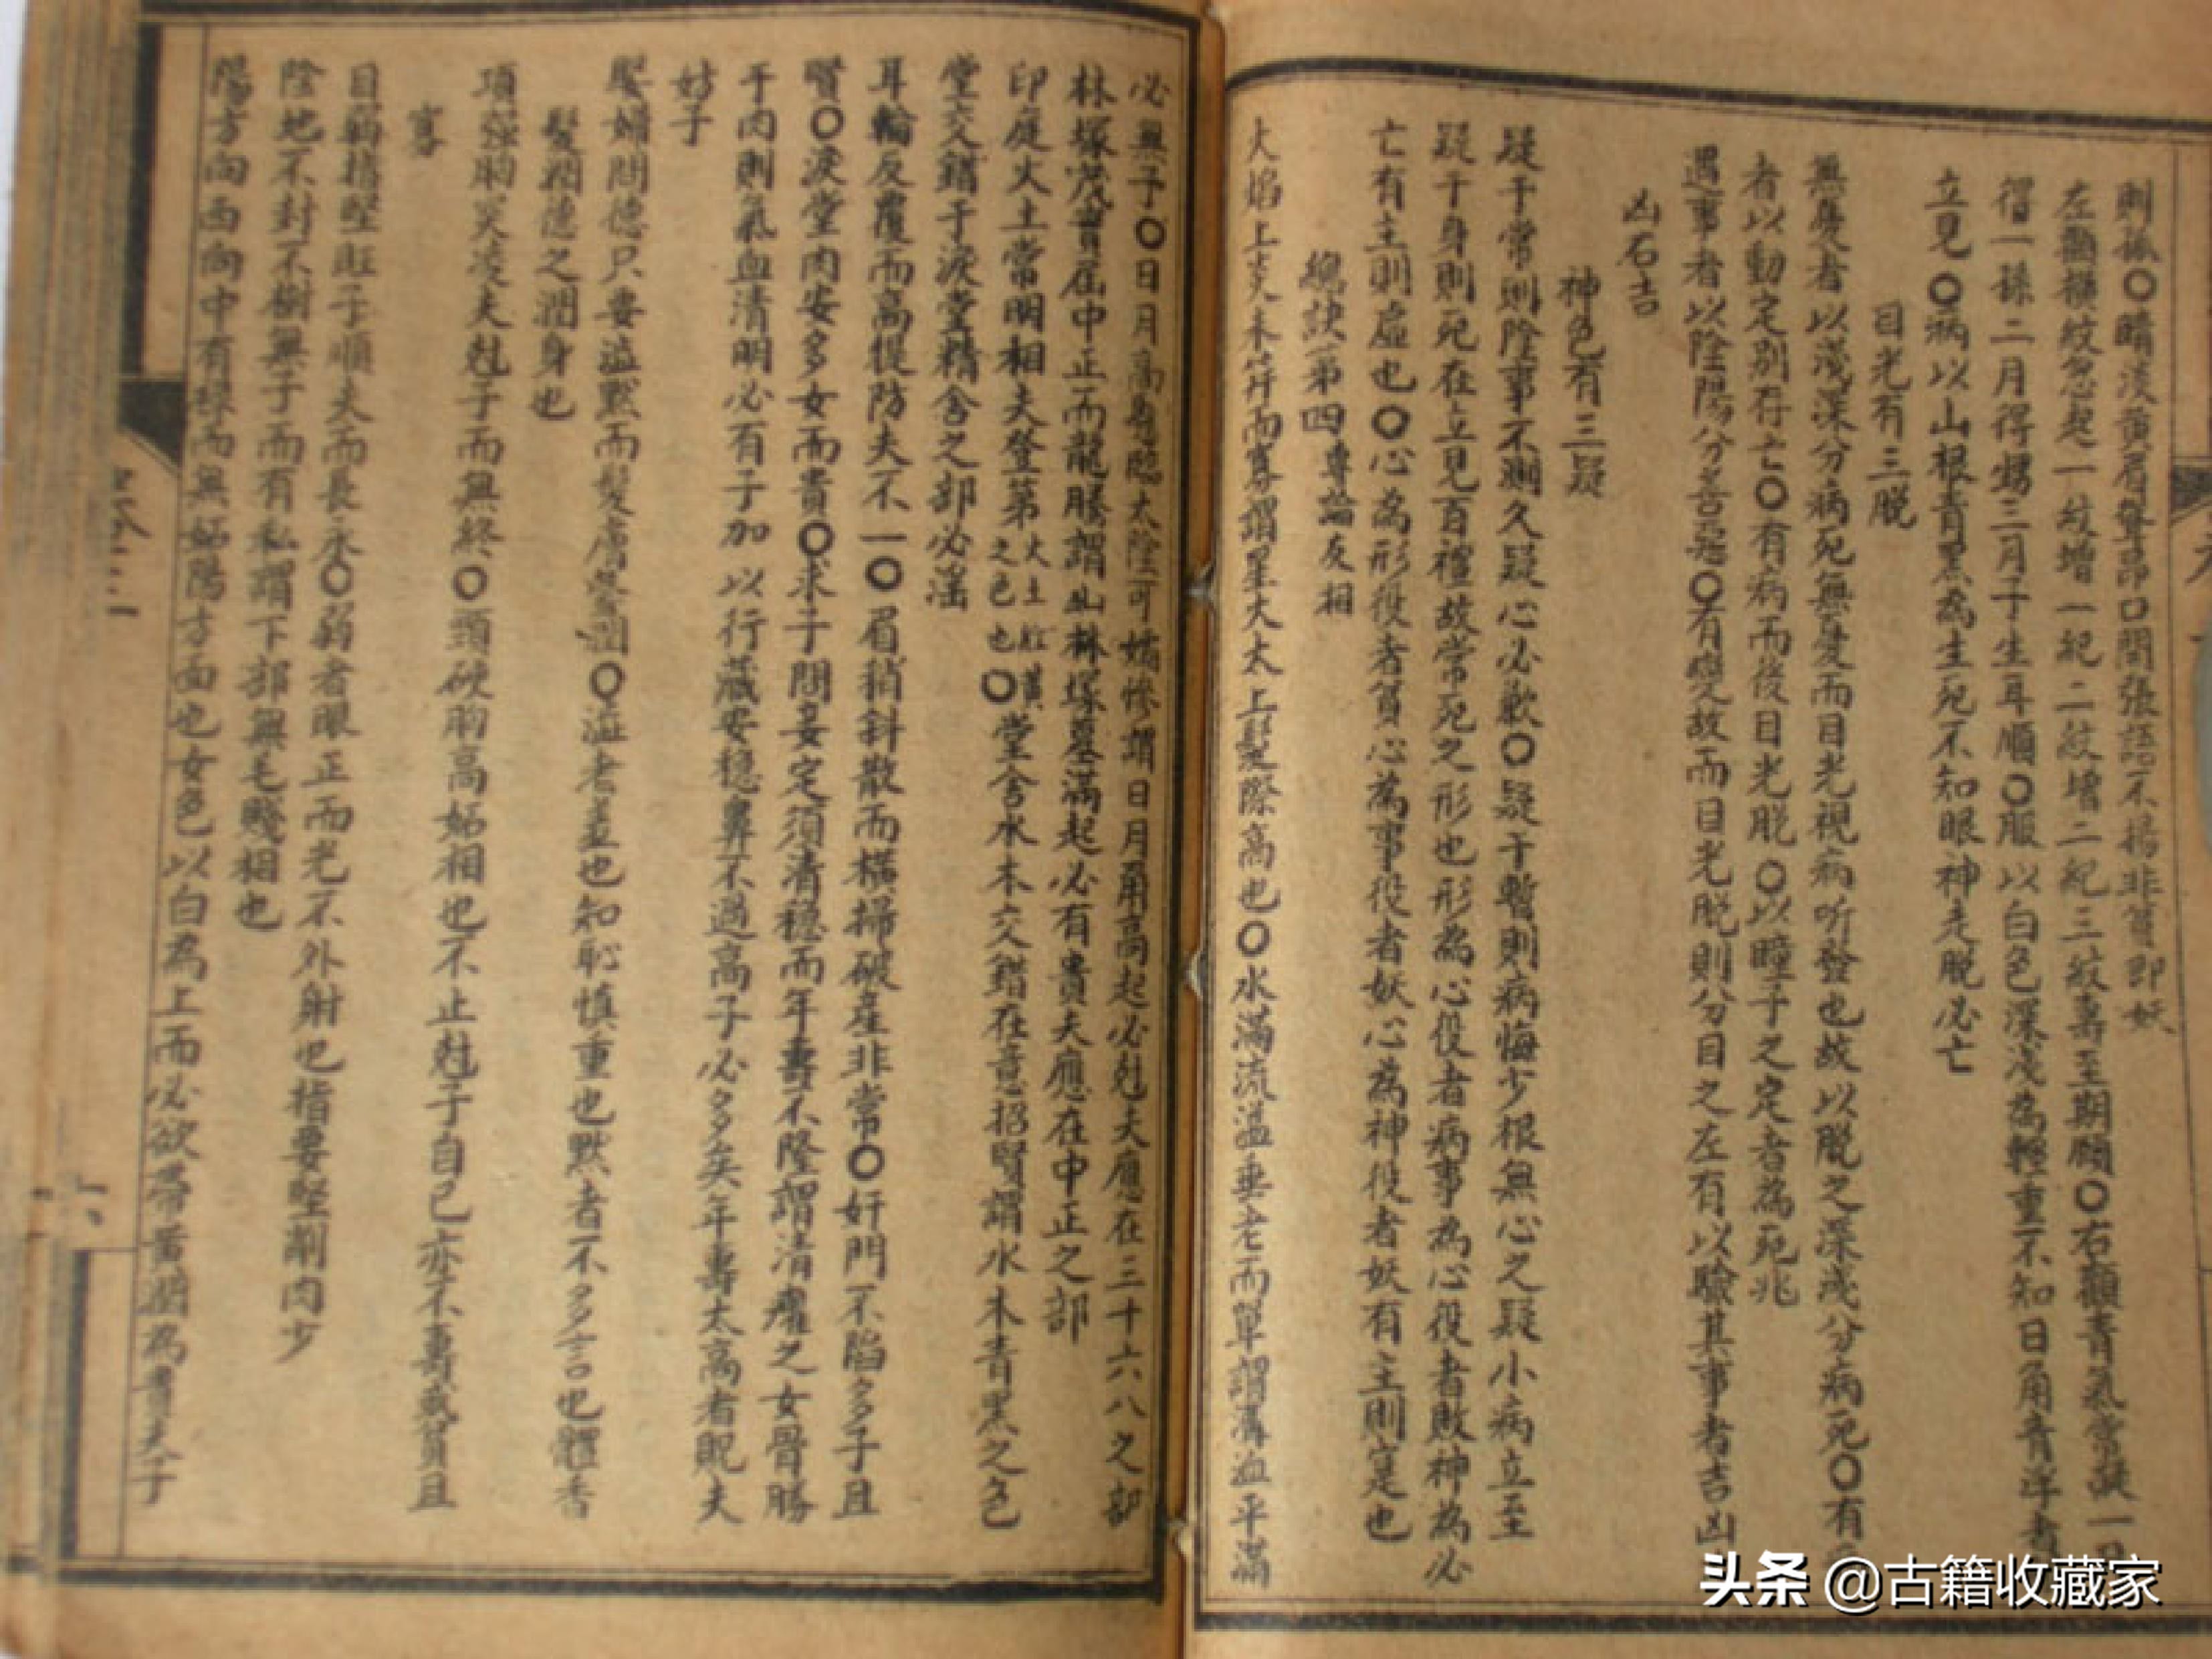 則孤○睛淡黄唇聳昂口開張語不揚非貧即妖
左顴橫紋忽起一紋增一紀二紋增二紀三紋壽至期頤○右顴青氣常凝一月
得一孫二月得甥三月子生耳順○服以白色深淺為輕重不知日角青浮者
立見○病以山根青黑為生死不知眼神走脫必亡
目光有三脫
無憂者以淺深分病死無憂而目光視病所發也故以脫之深淺分病死○有
者以動定別存亡○有病而後目光脫○以瞳子之定者為死兆
遇事者以陰陽分善惡○有變故而目光脫則分目之左右以驗其事者吉凶
凶右吉
神色有三疑
疑于常則陰事不測久疑心必歉○疑于暫則病悔少根無心之疑小病立至
疑于身則死在立見百禮故常死之形也形為心役者病事為心役者敗神為必
亡有主則虛也○心為形役者貧心為事役者妖心為神役者妖有主則寔也
總訣第四專論反相
火焰上炎未笄而寡謂星火太上髮際高也○水滿流溢垂老而單謂溝洫平滿
必無子○日月高懸臨太陰可嬌慘謂日月角高起必尅夫應在三十六八之部
林塚茂密居中正而龍騰謂山林塚墓滿起必有貴夫應在中正之部
印庭火土常明相夫登第火土紅黃之色也○堂舍水木交錯在意招賢謂水木青黑之色
堂交錯于淚堂精舍之部必滛
耳輪反覆而高提防夫不一○眉稍斜散而橫掃破產非常○奸門不陷多子且
賢○淚堂肉安多女而貴○求子問妾定須清穩而年壽不隆謂清癯之女骨勝
于肉則氣血清明必有子加以行藏安穩鼻不過高子必多矣年壽太高者眤夫
妨子
娶婦問德只要溢默而髮膚瑩潤○溢者羞也知恥慎重也默者不多言也體香
髮潤德之潤身也
項強胸突凌夫尅子而無終○頭硬胸高妬相也不止尅子自己亦不壽或貧且
寡
目藏指堅旺子順夫而長永○弱者眼正而光不外射也指要堅削肉少
陰地不封不樹無子而有私謂下部無毛賤相也
陽方向西向中有緑而無妬陽方面也女色以白為上而必欲帶黃潤為貴夫子
卷三
六
头条 @古籍收藏家